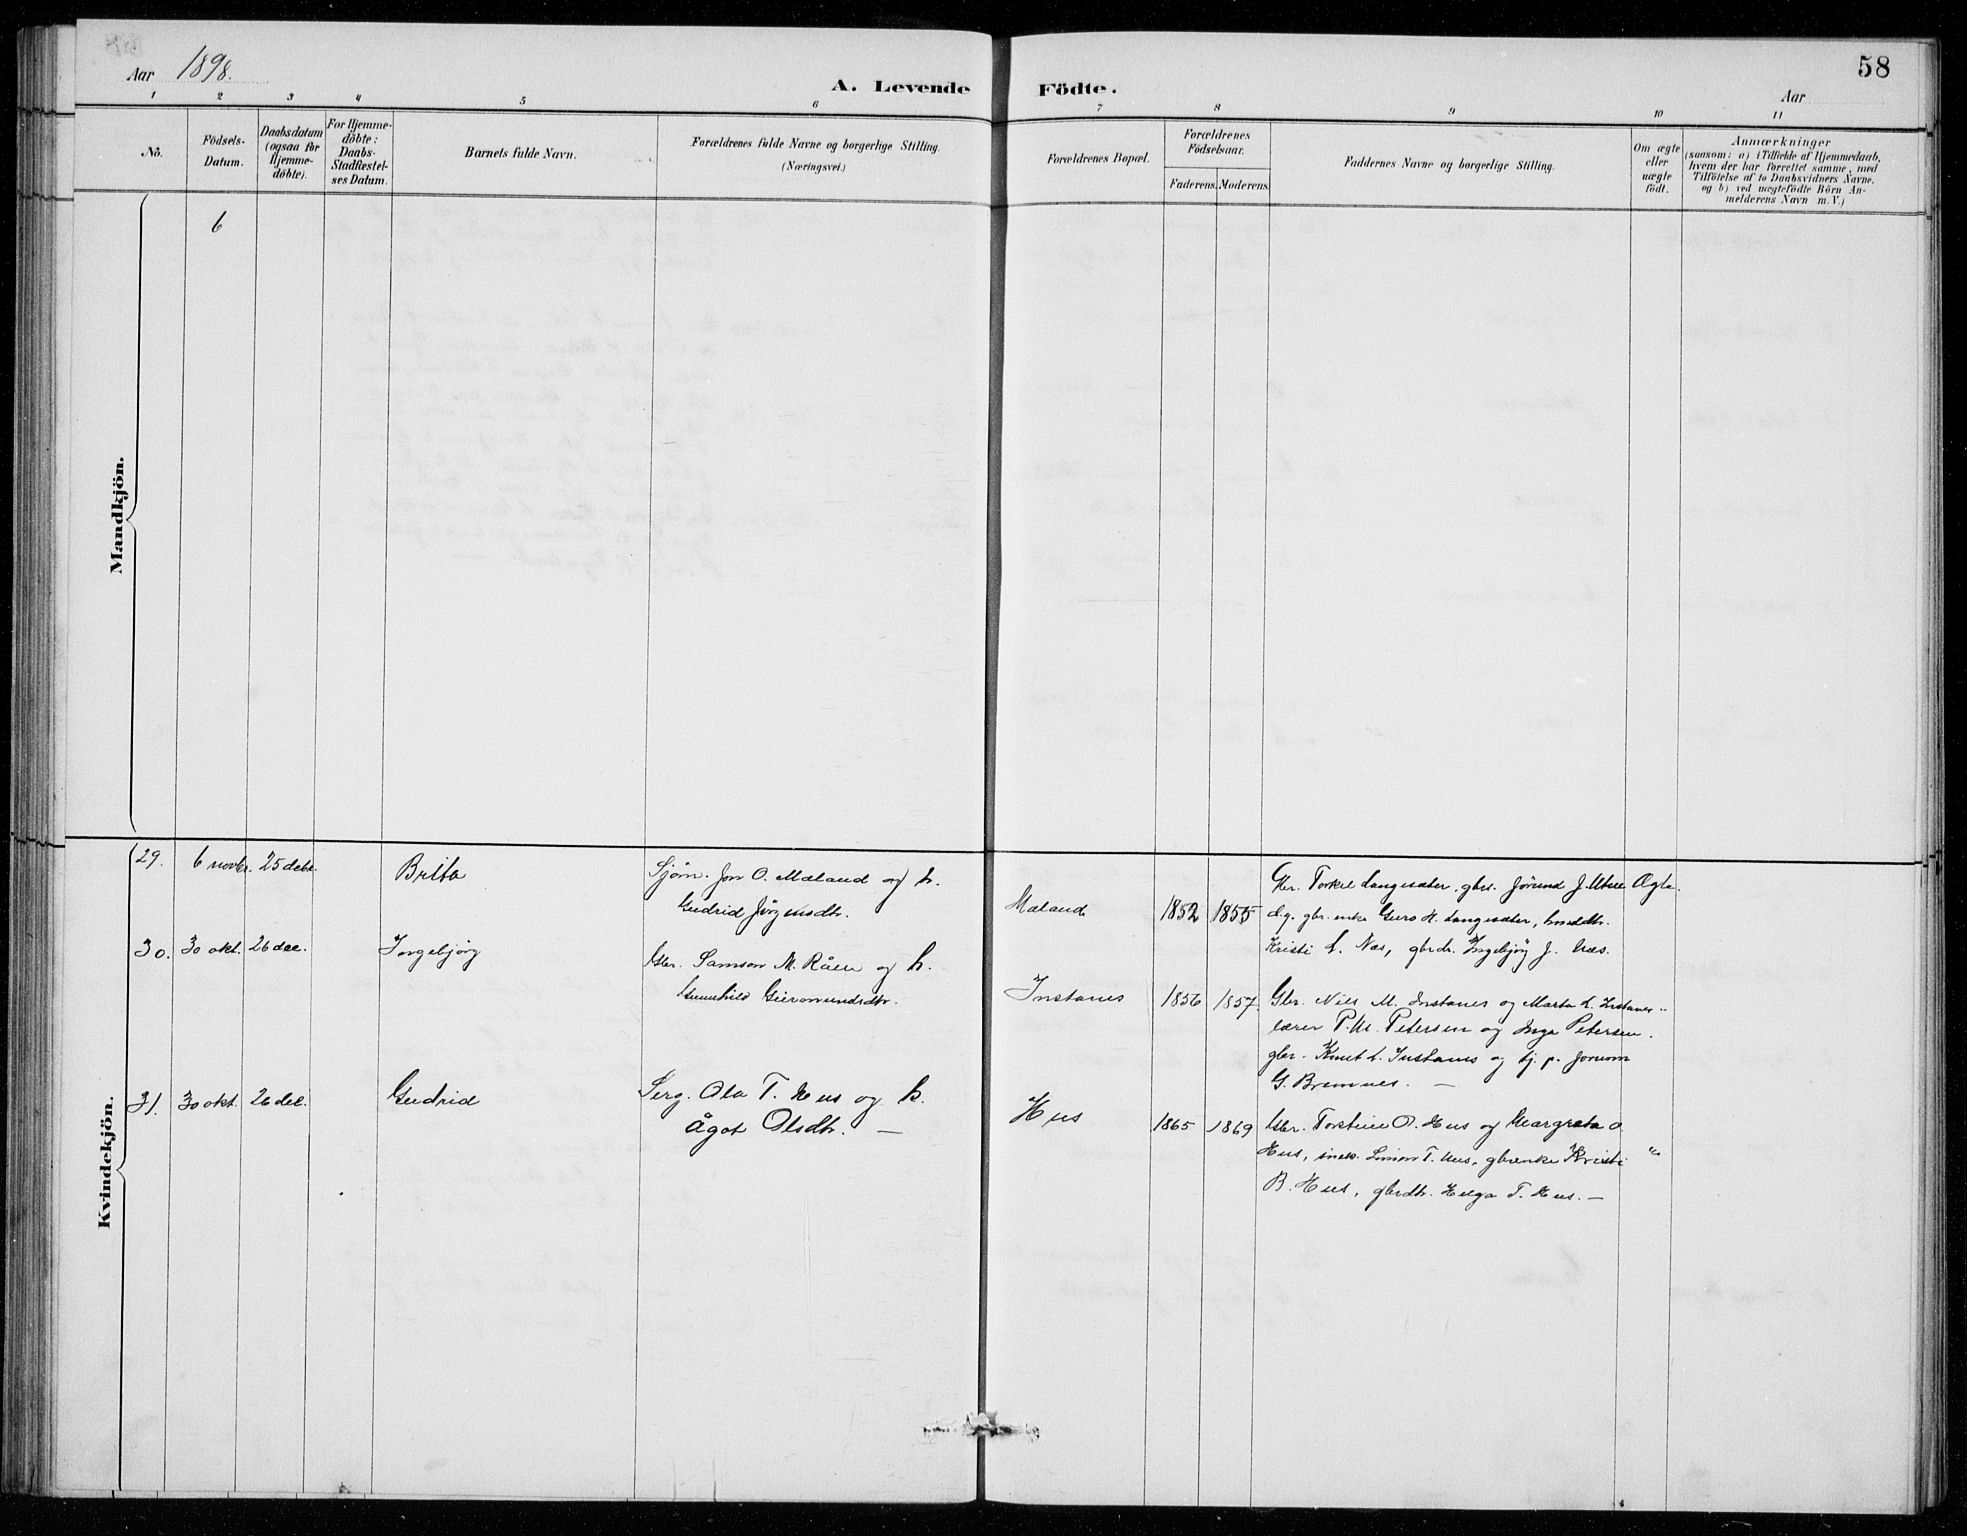 Aar 1898.
A. Levende Födte.
58
Aar
1 2 3 4 5 6 7 8 9 10 11
No.
Födsels-
Datum.
Daabsdatum
(ogsaa for
Hjemme-
döbte).
For Hjemme-
döbte:
Daabs-
Stadfæstel-
ses Datum.
Barnets fulde Navn.
Forældrenes fulde Navne og borgerlige Stilling.
(Næringsvei.)
Forældrenes Bopæl.
Forældrenes
Födselsaar.
Faderens. Moderens.
Faddernes Navne og borgerlige Stilling.
Om ægte
eller
uægte
födt.
Anmærkninger
(saasom: a) i Tilfælde af Hjemmedaab,
hvem der har forrettet samme, med
Tilföielse af to Daabsvidners Navne.
og b) ved uægtefödte Börn An-
melderens Navn m. V.)
Mandkjön.
6
Kvindekjön.
29. 6 novbr. 25 debr. Brita
Sjöm. Jon O. Mæland og h.
Gudrid Jörgensdtr.
Mæland 1852 1855
Gbr. Torkel Langesæter, gbrs. Jörund J. Utne Ægte.
d.g. gbr. enke Guro H. Langesæter,
Kristi L. Næs, gbrdr. Ingebjörg J. Næs.
30. 30 okt. 26 dec. Ingebjörg
Gbr. Samson M. Råen og h.
Gunnhild Geirmundsdtr.
Instanes 1856 1857.
Gbr. Nils M. Instanes og Marta L. Instanes "
lærer P. M. Petersen og Inga Petersen.
gbr. Knut L. Instanes og tj. p. Jorunn
G. Bremnes. —
31. 30 okt. 26 dec. Gudrid
Serg. Ola T. Hus og h.
Ågot Olsdtr. —
Hus 1865 1869
Gbr. Torstein O. Hus og Margreta O.
Hus, Simon T. Hus, gbrenke Kristi "
B. Hus, gbrdtr. Helga T. Hus. —